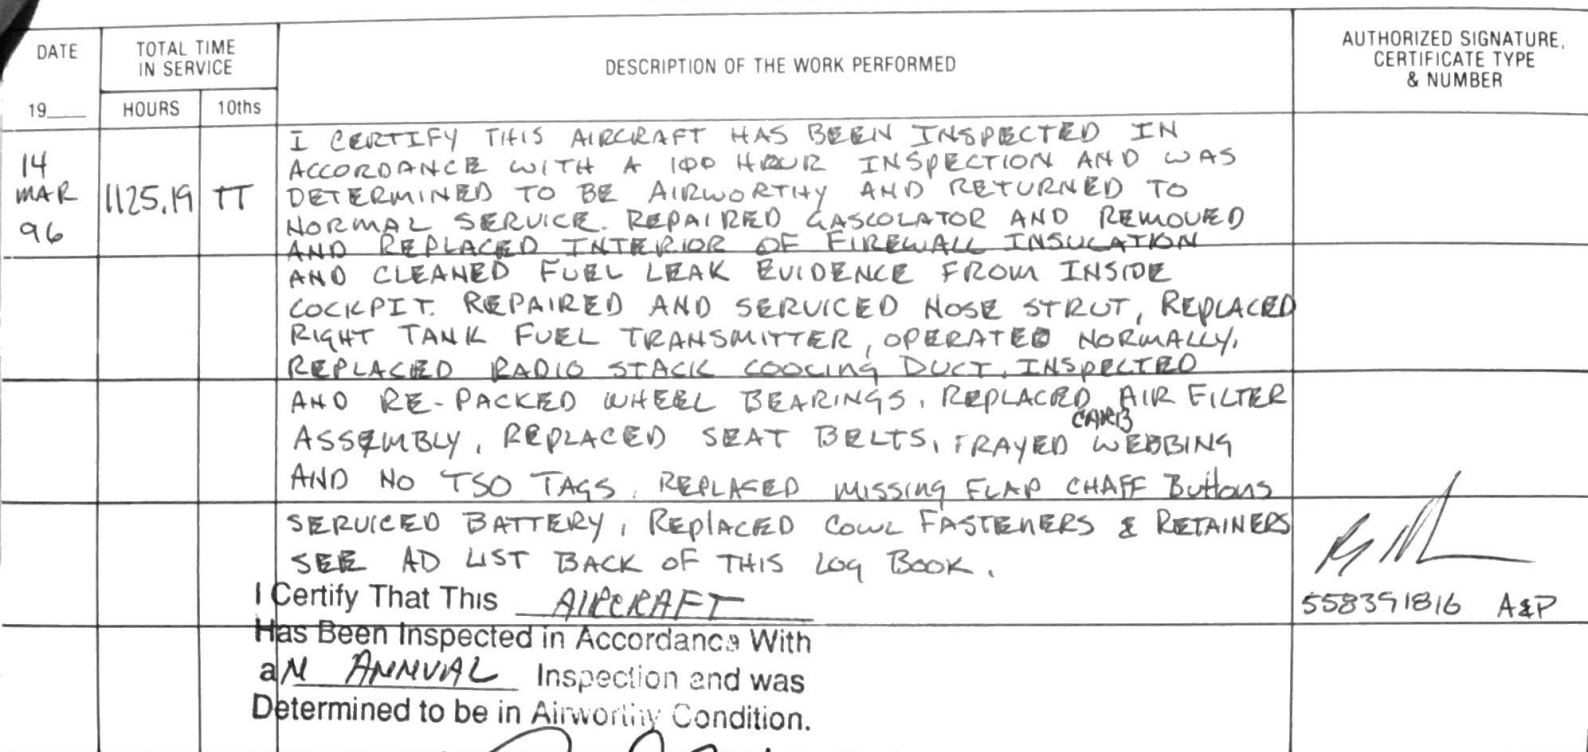 DATE
TOTAL TIME
IN SERVICE
DESCRIPTION OF THE WORK PERFORMED
AUTHORIZED SIGNATURE,
CERTIFICATE TYPE
& NUMBER
19___
HOURS
10ths
14
MAR
96
1125.19
TT
I CERTIFY THIS AIRCRAFT HAS BEEN INSPECTED IN
ACCORDANCE WITH A 100 HOUR INSPECTION AND WAS
DETERMINED TO BE AIRWORTHY AND RETURNED TO
NORMAL SERVICE. REPAIRED GASCOLATOR AND REMOVED
AND REPLACED INTERIOR OF FIREWALL INSULATION
AND CLEANED FUEL LEAK EVIDENCE FROM INSIDE
COCKPIT. REPAIRED AND SERVICED NOSE STRUT, REPLACED
RIGHT TANK FUEL TRANSMITTER, OPERATED NORMALLY,
REPLACED RADIO STACK COOLING DUCT, INSPECTED
AND RE-PACKED WHEEL BEARINGS, REPLACED AIR FILTER
CARB
ASSEMBLY, REPLACED SEAT BELTS, FRAYED WEBBING
AND NO TSO TAGS, REPLACED MISSING FLAP CHAFF Buttons
SERVICED BATTERY, REPLACED COWL FASTENERS & RETAINERS
SEE AD LIST BACK OF THIS LOG BOOK.
558391816 A&P
I Certify That This AIRCRAFT
Has Been Inspected in Accordance With
aN ANNUAL Inspection and was
Determined to be in Airworthy Condition.